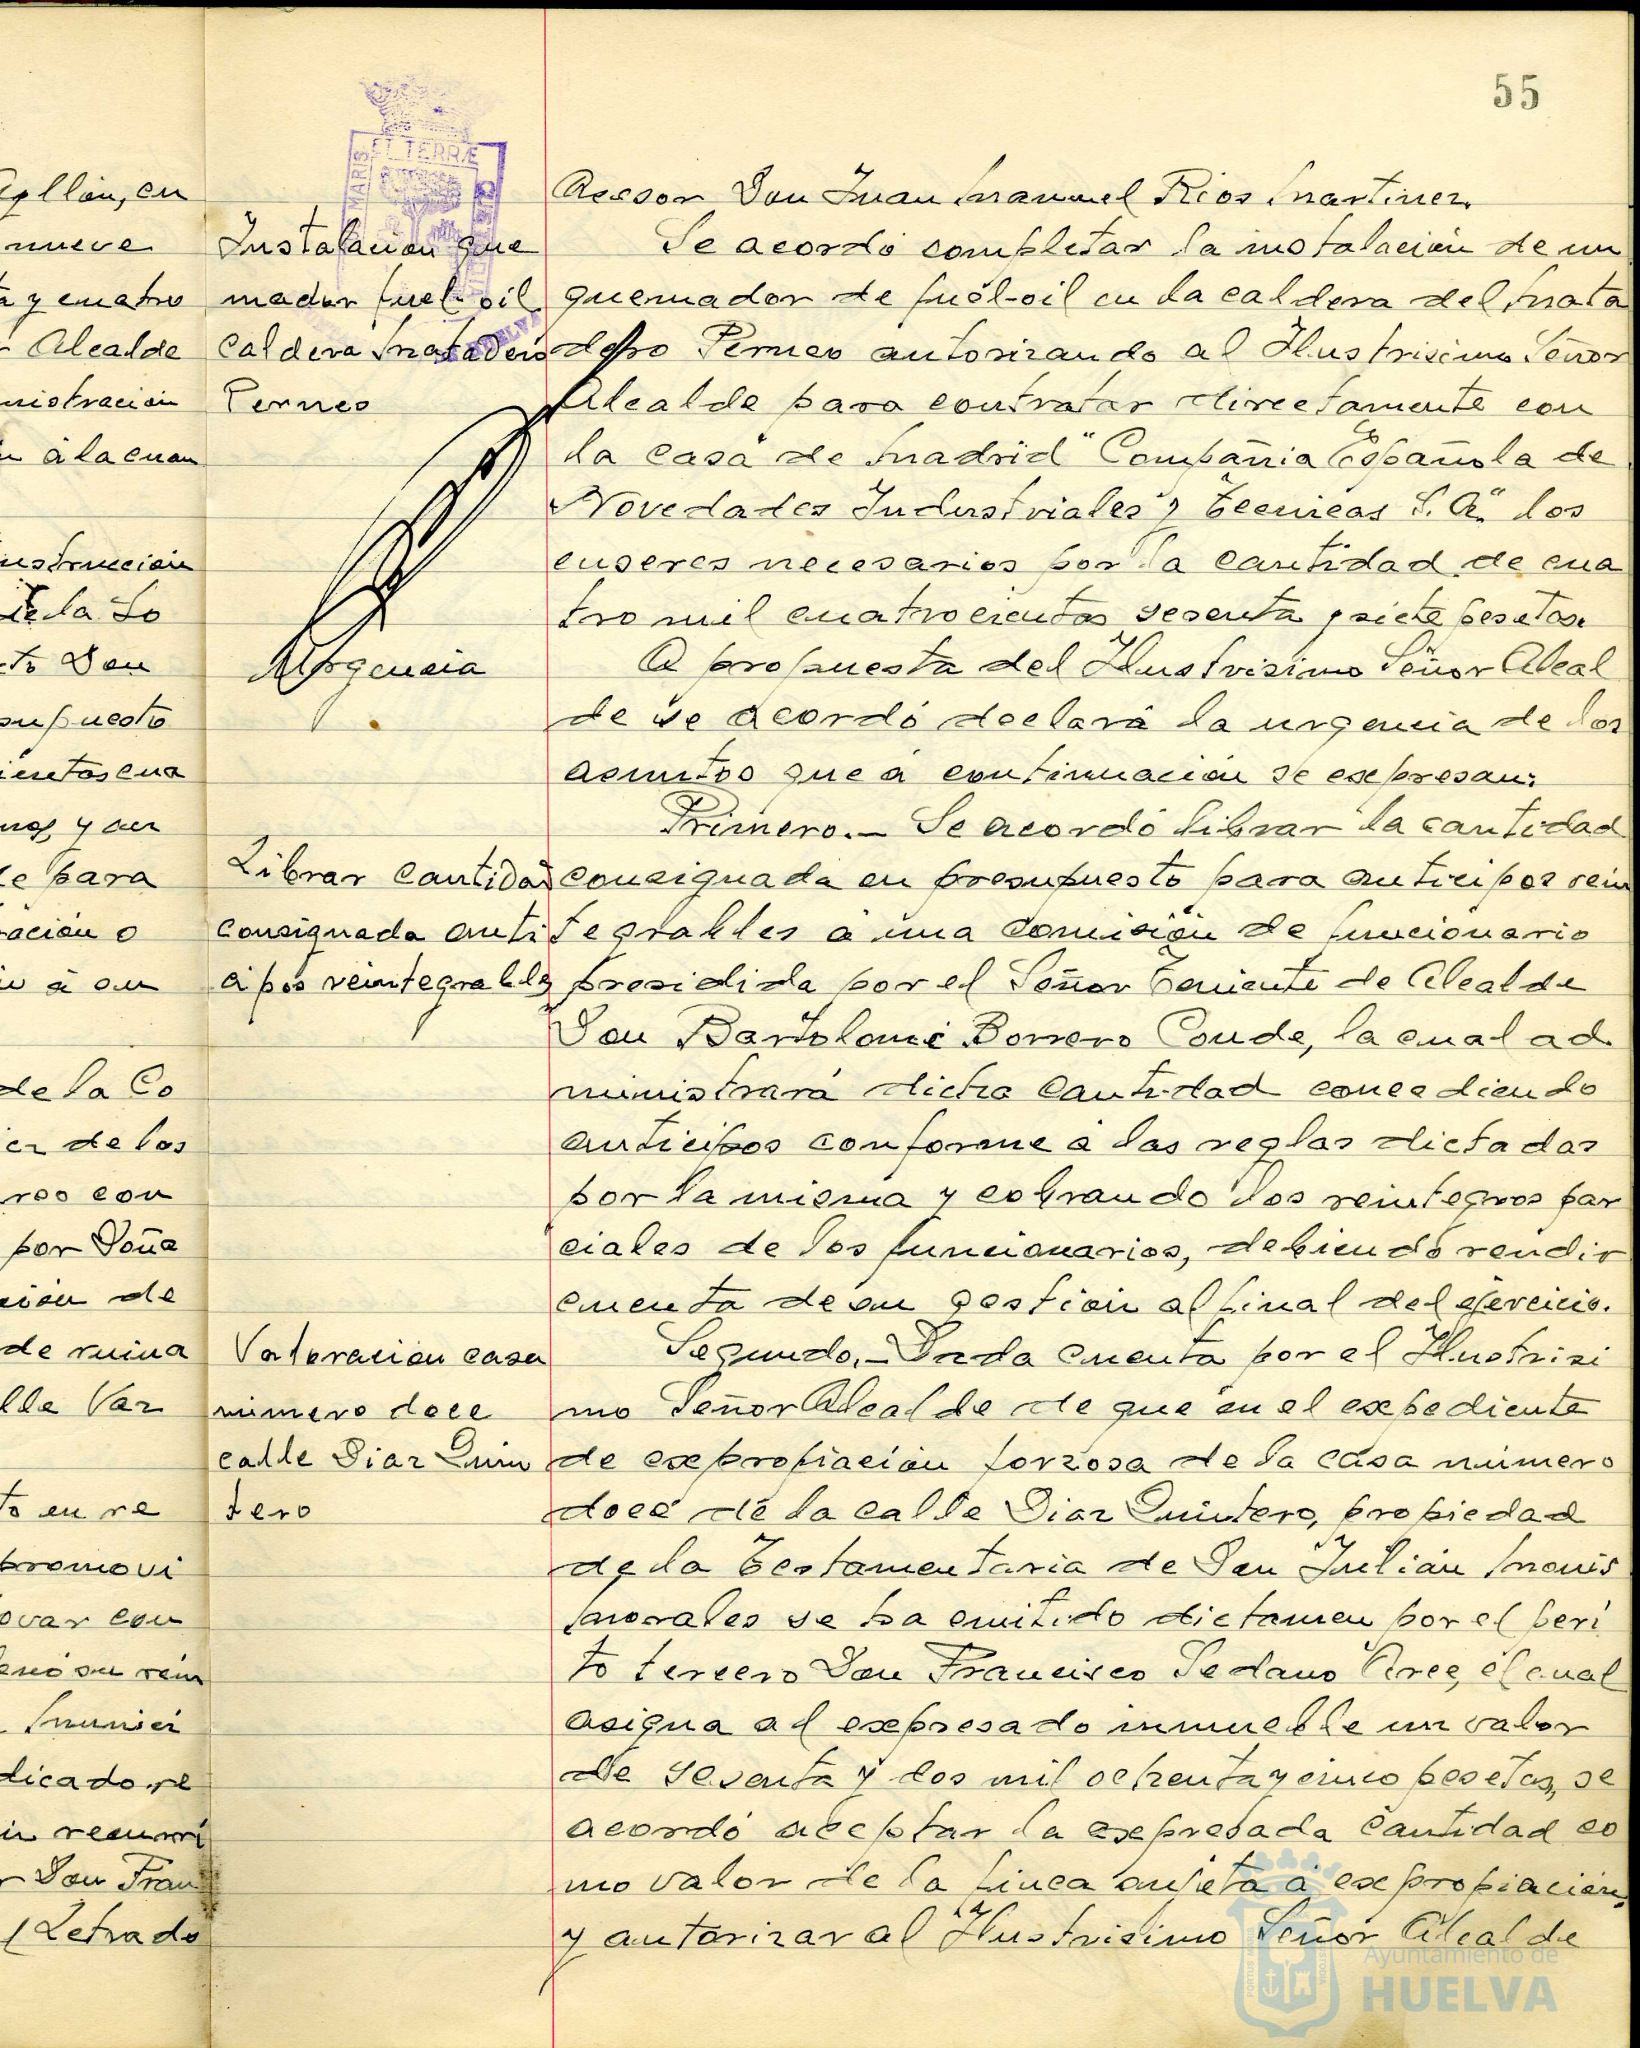 55
Ayllón, en
nueve
ta y cuatro
r Alcalde
nistración
n á la cuan
nstrucción
de la So
to Don
supuesto
cientas cua
mos, y au
le para
ración o
á su
de la Co
cer de los
ros con
por Doña
ción de
de ruina
lle Vaz
to en re
promovi
ovar con
su rein
Munici
dicado, re
in recurri
r Don Fran
l Letrado
MARIS
ET TERRÆ
HUELVA
Instalación que
mador fuel-oil
caldera Matadero
Perneo
Urgencia
Librar cantidad
consignada anti
cipos reintegrables
Valoración casa
número doce
calle Diaz Quin
tero
Asesor Don Juan Manuel Rios Martinez.
Se acordó completar la instalación de un
quemador de fuel-oil en la caldera del Mata
dero Perneo autorizando al Ilustrisimo Señor
Alcalde para contratar directamente con
la casa de Madrid "Compañia Española de
Novedades Industriales y Tecnicas S.A." los
enseres necesarios por la cantidad de cua
tro mil cuatrocientas sesenta y siete pesetas.
A propuesta del Ilustrisimo Señor Alcal
de se acordó declara la urgencia de los
asuntos que á continuación se expresan:
Primero.- Se acordó librar la cantidad
consignada en presupuesto para anticipos rein
tegrables á una Comisión de funcionario
presidida por el Señor Teniente de Alcalde
Don Bartolomé Borrero Conde, la cual ad
ministrará dicha cantidad concediendo
anticipos conforme á las reglas dictadas
por la misma y cobrando los reintegros par
ciales de los funcionarios, debiendo rendir
cuenta de su gestión al final del ejercicio.
Segundo.- Dada cuenta por el Ilustrisi
mo Señor Alcalde de que en el expediente
de expropiación forzosa de la casa número
doce de la calle Diaz Quintero, propiedad
de la Testamentaria de Don Julián Monis
Morales se ha emitido dictamen por el peri
to tercero Don Francisco Sedano Arce, el cual
asigna al expresado inmueble un valor
de sesenta y dos mil ochenta y cinco pesetas, se
acordó aceptar la expresada cantidad co
mo valor de la finca sujeta á expropiación,
y autorizar al Ilustrisimo Señor Alcalde
Ayuntamiento de
HUELVA